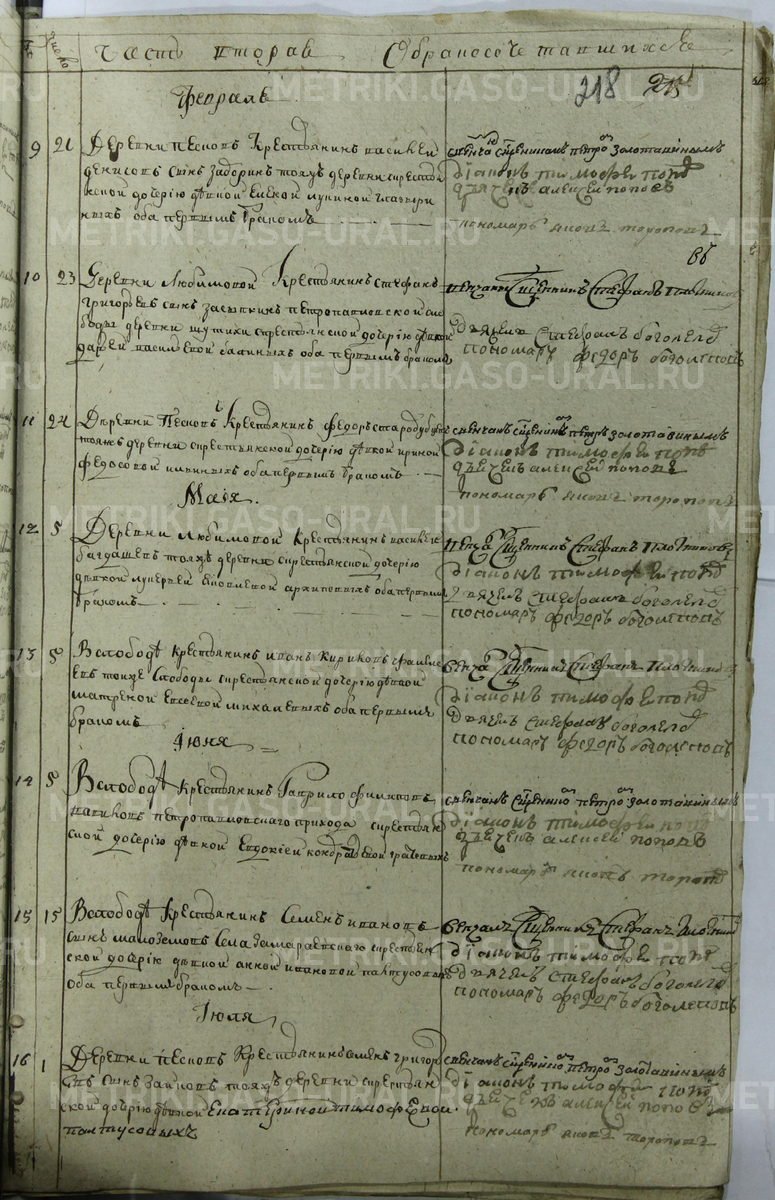 Часть вторая О браносочетавшихся
218
Февраль
9 21 Деревни песковъ Крестьянинъ василей
денисовъ сынъ задоринъ тояжъ деревни скрестьян
ской дочерію девкой
ныхъ оба первымъ бракомъ
венчалъ священникъ петръ золотавинъ
діаконъ тимофей поповъ
дьячекъ алексей поповъ
пономарь яковъ тороповъ
10 23 Деревни Любимовой Крестьянинъ стефанъ
григорьевъ сынъ засыпкинъ петропавловской сло
боды деревни шутихи скрестьянской дочерію девкой
дарьей васильевой бабиныхъ оба первымъ бракомъ
венчалъ Священникъ Стефанъ Плотниковъ
Дьячекъ Стефанъ боголеповъ
пономарь федоръ боголеповъ
11 24 Деревни Песковъ Крестьянинъ федоръ стародубцевъ
тояжъ деревни скрестьянской дочерію девкой ириной
федосовой ильиныхъ оба первымъ бракомъ
венчалъ священникъ петръ золотавинъ
діаконъ тимофей поповъ
дьячекъ алексей поповъ
пономарь яковъ тороповъ
Маія
12 5 Деревни любимовой Крестьянинъ василей
тояжъ деревни скрестьянской дочерію
девкой лукерьей Яковлевой архиповыхъ оба первымъ
бракомъ
венчалъ Священникъ Стефанъ Плотниковъ
діаконъ тимофей поповъ
Дьячекъ Стефанъ боголеповъ
пономарь федоръ боголеповъ
13 5 Вслободе крестьянинъ иванъ Кириковъ
евъ тояже Слободы скрестьянской дочерію девкой
матреной Евсеевой михалевыхъ оба первымъ
бракомъ
венчалъ Священникъ Стефанъ Плотниковъ
діаконъ тимофей поповъ
Дьячекъ Стефанъ боголеповъ
пономарь федоръ боголеповъ
Іюня
14 5 Вслободе Крестьянинъ Гаврило филиповъ
петропавловскаго прихода скрестьян
ской дочерію девкой Евдокіей кондратьевой грачевыхъ
венчалъ священникъ петръ золотавинъ
діаконъ тимофей поповъ
дьячекъ алексей поповъ
пономарь яковъ тороповъ
15 15 Вслободе Крестьянинъ Семенъ ивановъ
сынъ малоземовъ Села Замараевскаго скрестьян
ской дочерію девкой анной ивановой палтусовыхъ
оба первымъ бракомъ
венчалъ Священникъ Стефанъ Плотниковъ
діаконъ тимофей поповъ
Дьячекъ Стефанъ боголеповъ
пономарь федоръ боголеповъ
Іюля
16 1 Деревни песковъ Крестьянинъ семенъ григорь
евъ сынъ зайковъ тояжъ деревни скрестьян
ской дочерію девкой Екатериной тимофеевой
палтусовыхъ
венчалъ священникъ петръ золотавинъ
діаконъ тимофей поповъ
дьячекъ алексей поповъ
пономарь яковъ тороповъ
METRIKI.GASO-URAL.RU